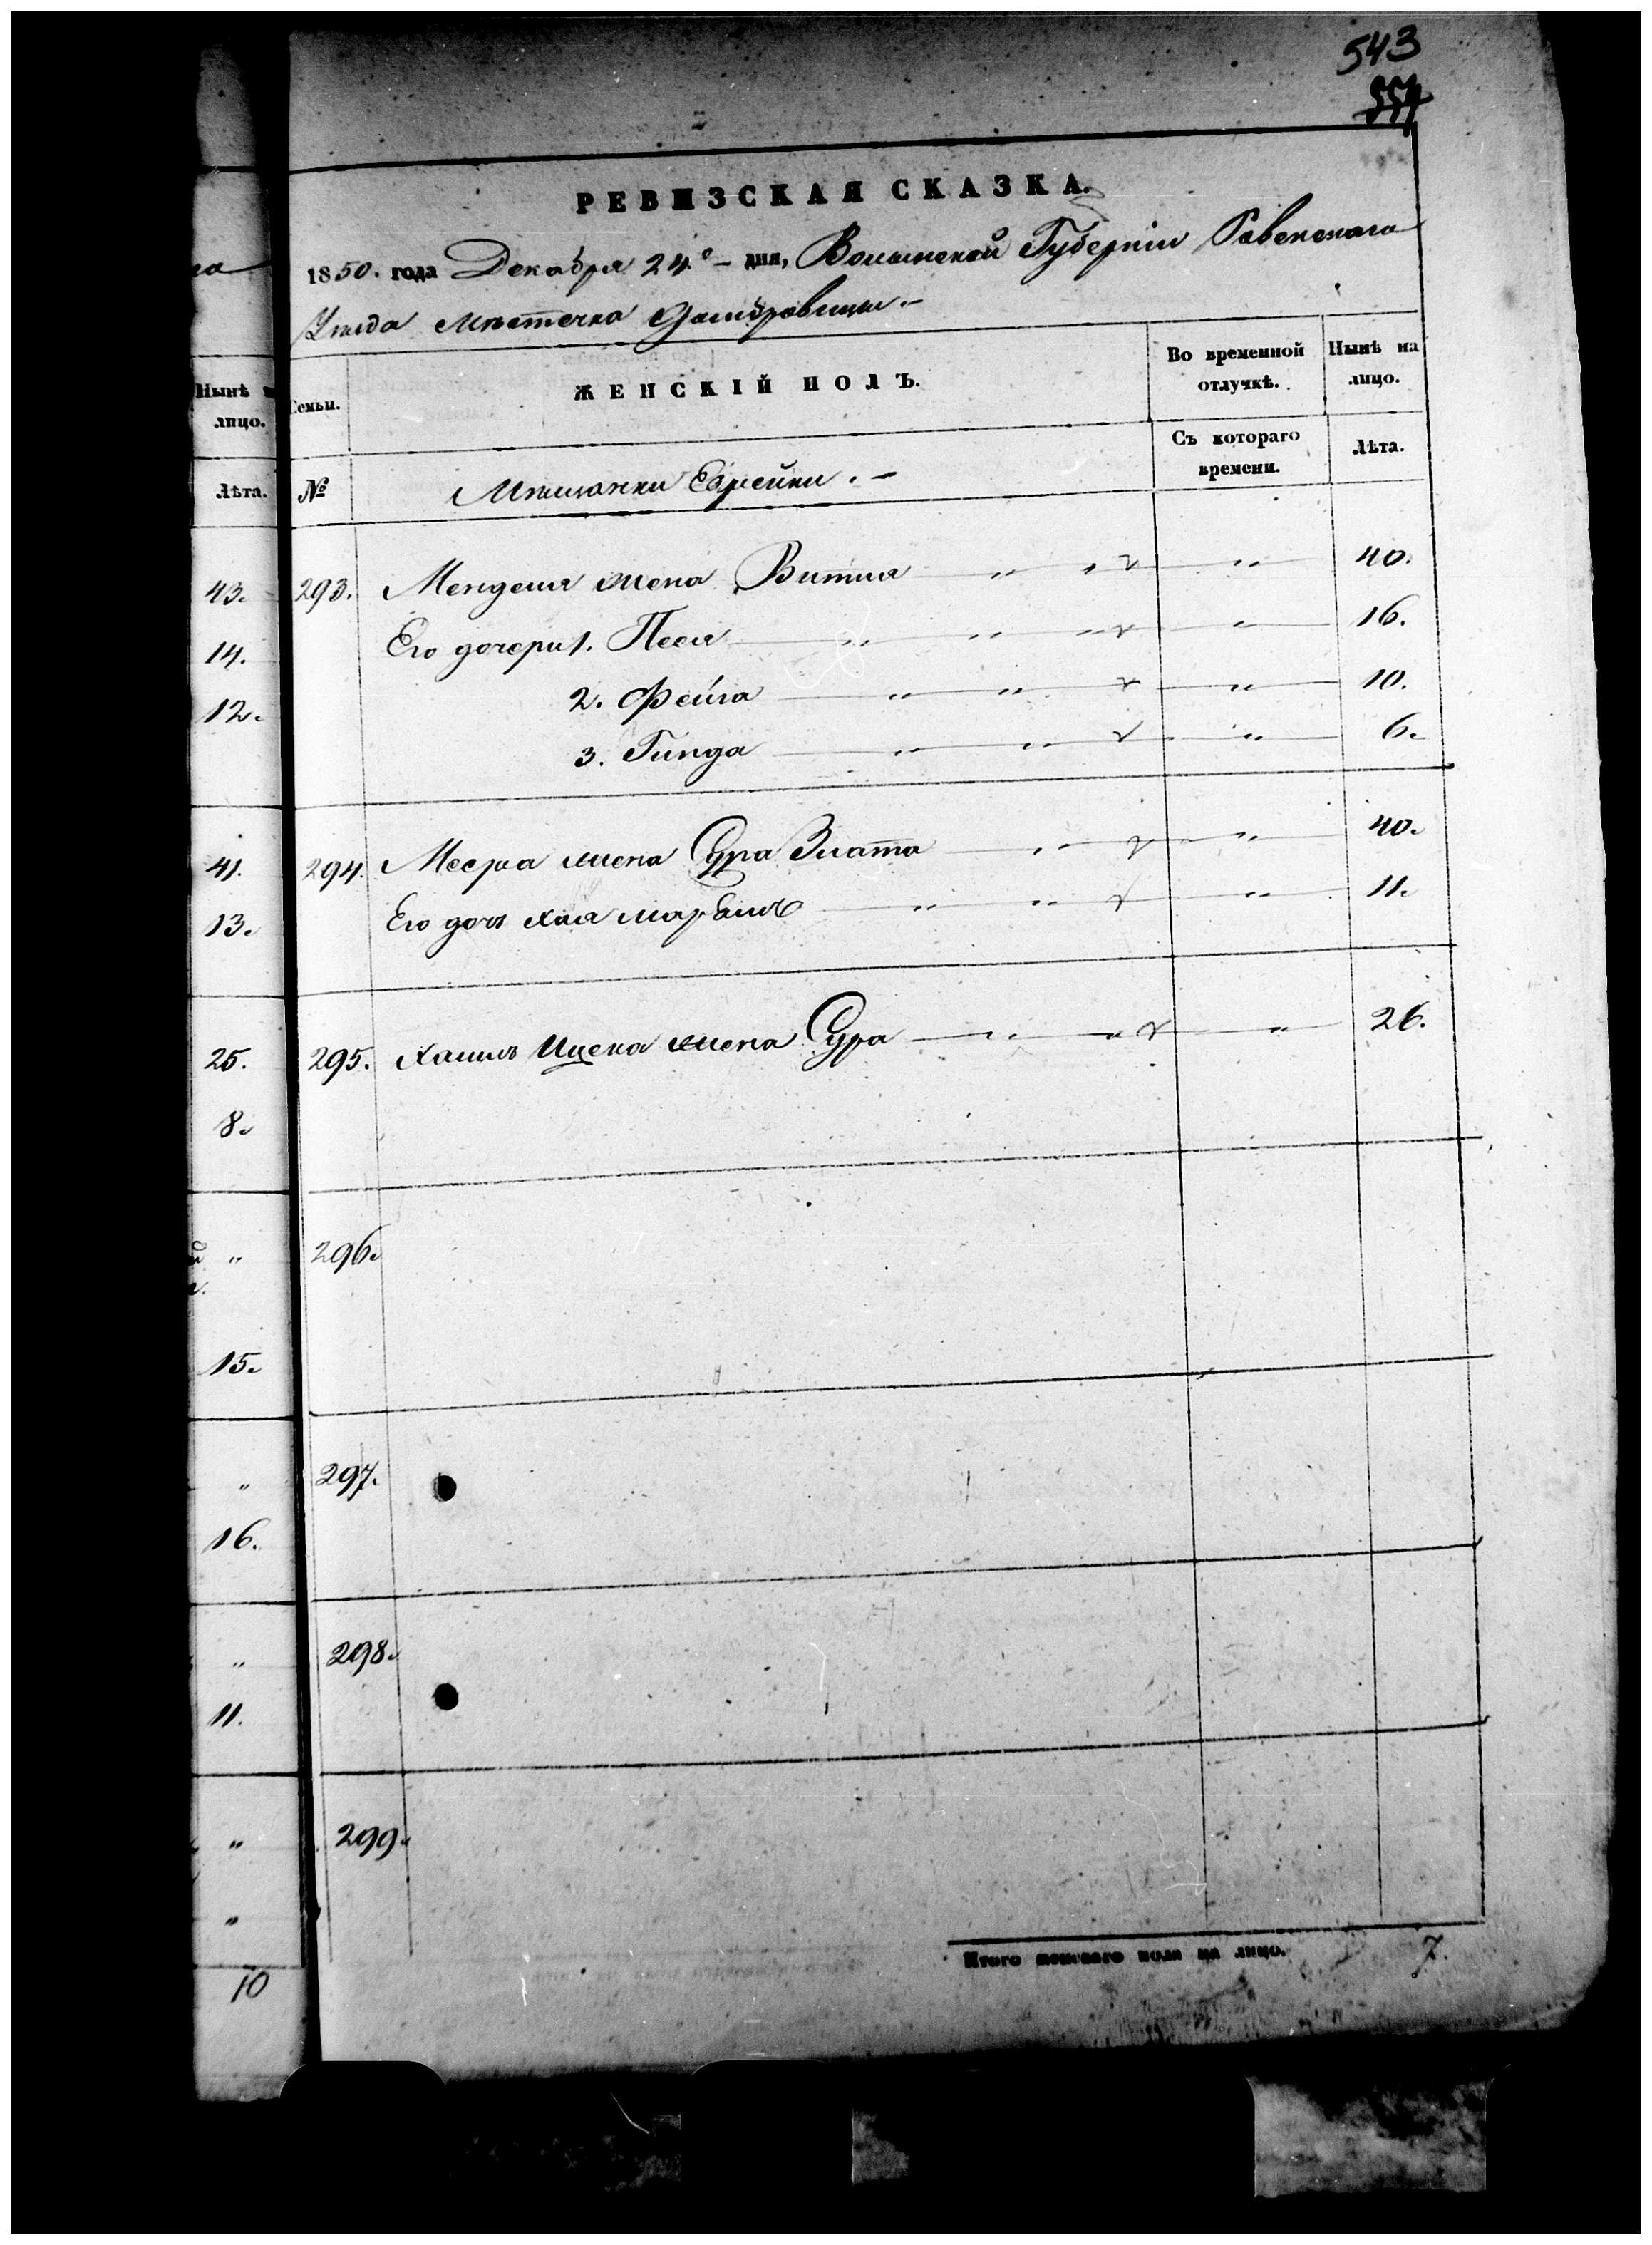 543
554
РЕВИЗСКАЯ СКАЗКА.
1850. года Декабря 24.го – дня, Волынской Губерніи Ровенскаго
Уѣзда Мѣстечка Домбровицы. –
Нынѣ
лицо.
Лѣта.
Семьи.
ЖЕНСКІЙ ПОЛЪ.
Во временной
отлучкѣ.
Нынѣ на
лицо.
№
Мѣщанки Еврейки. –
Съ котораго
времени.
Лѣта.
43. 293. Менделя жена Витля " " " 40.
14. Его дочери 1. Песя " " " " 16.
12. 2. Фейга " " " 10.
3. Гинда " " " 6.
41. 294. жена Сура Злата " " 40.
13. Его дочь Хая " " " 11.
25. 295. Хаимъ Ицека жена Сура " " " 26.
8.
" 296.
15.
" 297.
16.
" 298.
11.
" 299.
"
10
Итого женскаго пола на лицо. 7.